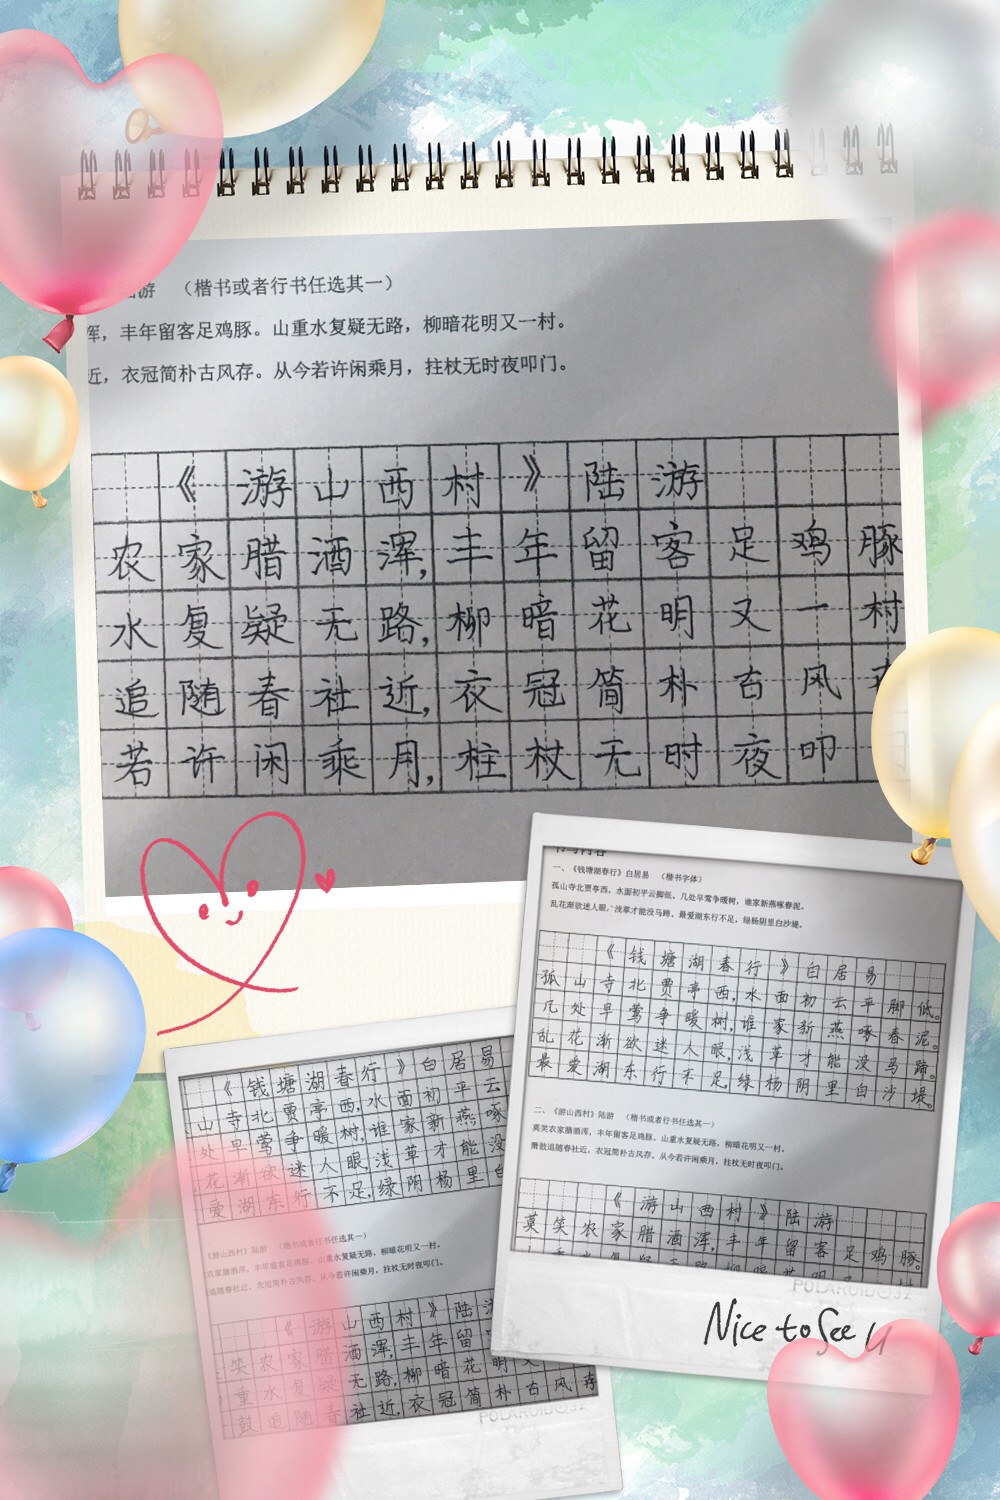 陆游 （楷书或者行书任选其一）
浑，丰年留客足鸡豚。山重水复疑无路，柳暗花明又一村。
近，衣冠简朴古风存。从今若许闲乘月，拄杖无时夜叩门。
《游山西村》陆游
农家腊酒浑,丰年留客足鸡豚
水复疑无路,柳暗花明又一村
追随春社近,衣冠简朴古风
若许闲乘月,柱杖无时夜叩
一、《钱塘湖春行》白居易 （楷书字体）
孤山寺北贾亭西，水面初平云脚低。几处早莺争暖树，谁家新燕啄春泥。
乱花渐欲迷人眼，浅草才能没马蹄。最爱湖东行不足，绿杨阴里白沙堤。
《钱塘湖春行》白居易
孤山寺北贾亭西,水面初云平脚低。
几处早莺争暖树,谁家新燕啄春泥。
乱花渐欲迷人眼,浅草才能没马蹄。
最爱湖东行不足,绿杨阴里白沙堤。
二、《游山西村》陆游 （楷书或者行书任选其一）
莫笑农家腊酒浑，丰年留客足鸡豚。山重水复疑无路，柳暗花明又一村。
追随春社近，衣冠简朴古风存。从今若许闲乘月，拄杖无时夜叩门。
《游山西村》陆游
莫笑农家腊酒浑,丰年留客足鸡豚。
Nice to See U
《钱塘湖春行》白居易
山寺北贾亭西,水面初平云
处早莺争暖树,谁家新燕啄
花渐欲迷人眼,浅草才能没
爱湖东行不足,绿阴杨里白
《游山西村》陆游 （楷书或者行书任选其一）
农家腊酒浑，丰年留客足鸡豚。山重水复疑无路，柳暗花明又一村。
追随春社近，衣冠简朴古风存。从今若许闲乘月，拄杖无时夜叩门。
《游山西村》陆游
笑农家腊酒浑,丰年留
重水复疑无路,柳暗花明
鼓追随春社近,衣冠简朴古风存